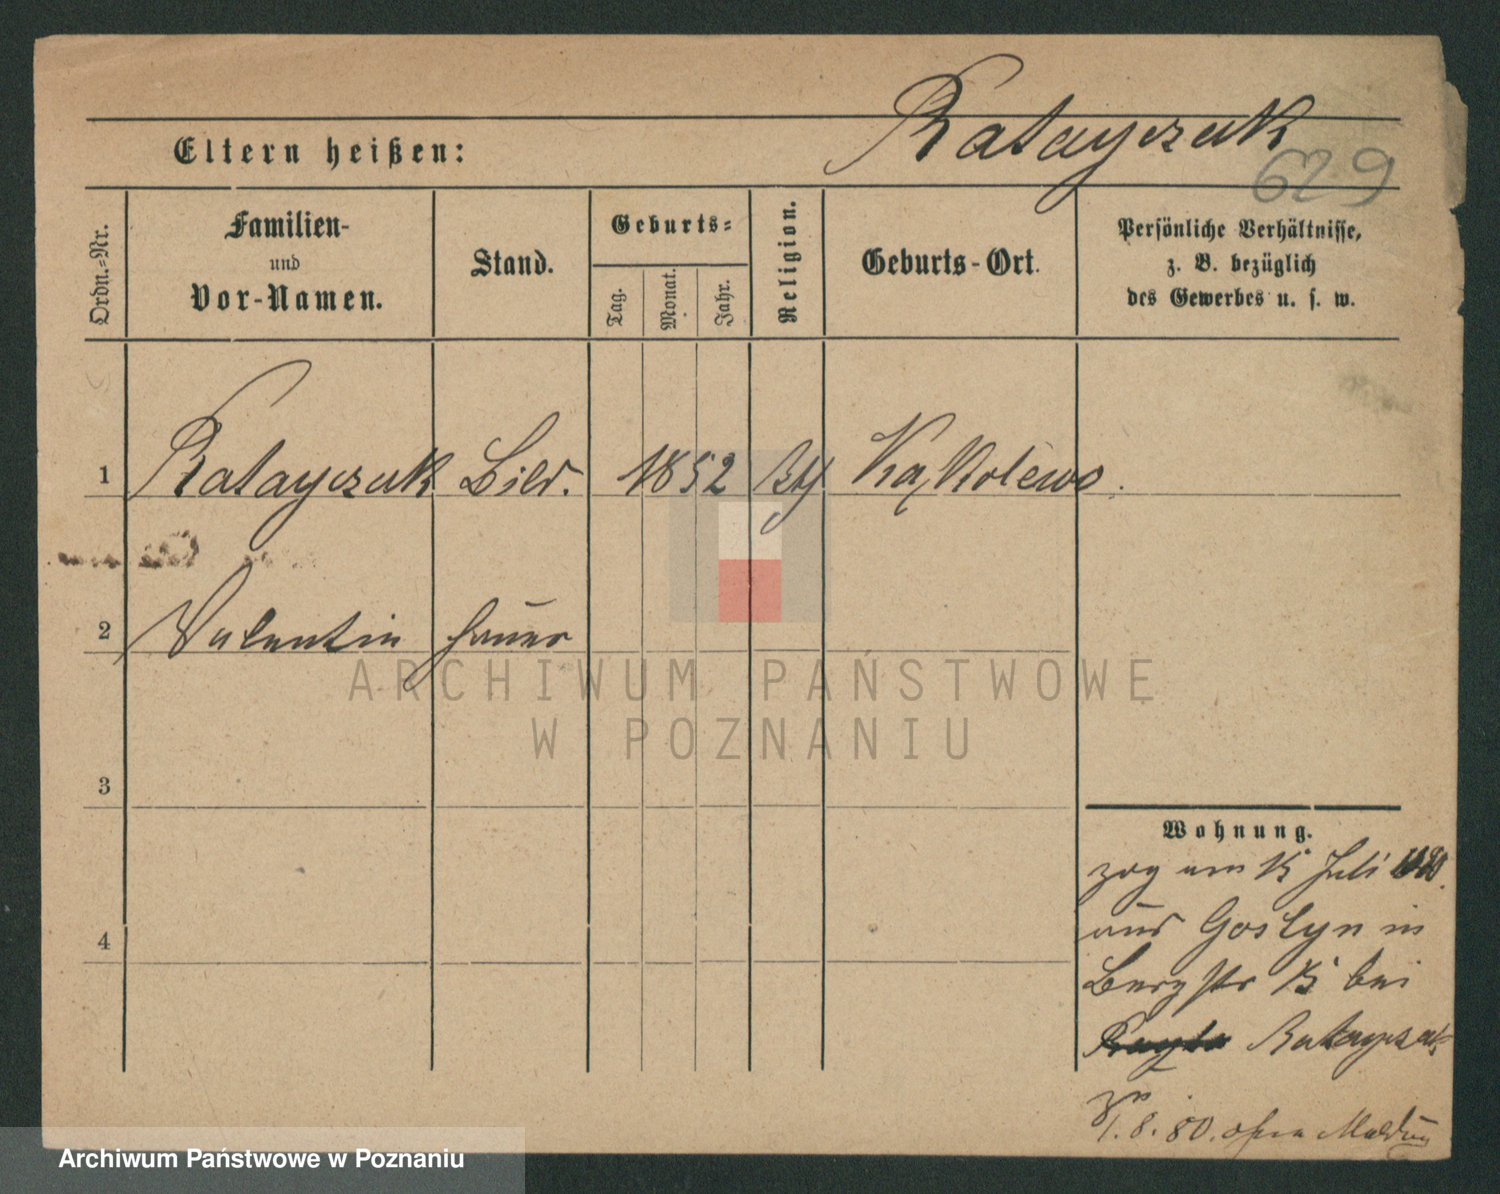 Ratayczak
629
Eltern heißen:
Ordn.-Nr.
Familien-
und
Vor-Namen.
Stand.
Geburts-
Tag.
Monat.
Jahr.
Religion.
Geburts-Ort.
Persönliche Verhältnisse,
z. B. bezüglich
des Gewerbes u. s. w.
1 Ratayczak Bild. 1852 Kąkolewo.
2 Valentin hauer
3
4
Wohnung.
zog am 15 Juli 1880.
aus Gostyn in
Bergstr 15 bei
Ratayczak
1.8.80. ohne Meldung
ARCHIWUM PAŃSTWOWE
W POZNANIU
Archiwum Państwowe w Poznaniu